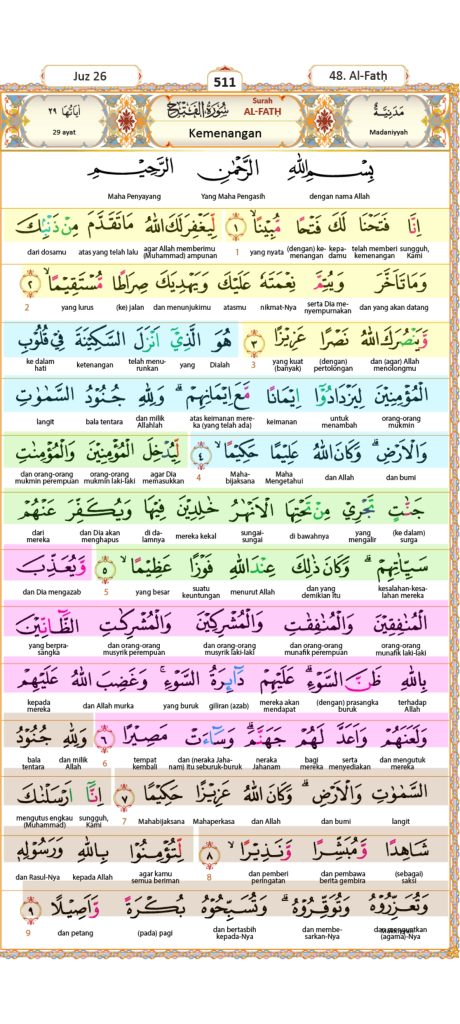 Juz 26
511
48. Al-Fatḥ
مَدَنِيَّةٌ
Madaniyyah
سُوْرَةُ الْفَتْحِ
Surah AL-FATḤ
Kemenangan
اٰيَاتُهَا ٢٩
29 ayat
بِسْمِ اللّٰهِ الرَّحْمٰنِ الرَّحِيْمِ
dengan nama Allah Yang Maha Pengasih Maha Penyayang
اِنَّا فَتَحْنَا لَكَ فَتْحًا مُّبِيْنًاۙ ١ لِّيَغْفِرَ لَكَ اللّٰهُ مَا تَقَدَّمَ مِنْ ذَنْۢبِكَ
sungguh, Kami telah memberi kemenangan kepadamu (dengan) kemenangan yang nyata 1 agar Allah memberimu (Muhammad) ampunan atas yang telah lalu dari dosamu
وَمَا تَاَخَّرَ وَيُتِمَّ نِعْمَتَهٗ عَلَيْكَ وَيَهْدِيَكَ صِرَاطًا مُّسْتَقِيْمًاۙ ٢
dan yang akan datang serta Dia menyempurnakan nikmat-Nya atasmu dan menunjukimu (ke) jalan yang lurus 2
وَّيَنْصُرَكَ اللّٰهُ نَصْرًا عَزِيْزًا ٣ هُوَ الَّذِيْٓ اَنْزَلَ السَّكِيْنَةَ فِيْ قُلُوْبِ
dan (agar) Allah menolongmu (dengan) pertolongan yang kuat (banyak) 3 Dialah yang telah menurunkan ketenangan ke dalam hati
الْمُؤْمِنِيْنَ لِيَزْدَادُوْٓا اِيْمَانًا مَّعَ اِيْمَانِهِمْۗ وَلِلّٰهِ جُنُوْدُ السَّمٰوٰتِ
orang-orang mukmin untuk menambah keimanan atas keimanan mereka (yang telah ada) dan milik Allahlah bala tentara langit
وَالْاَرْضِۗ وَكَانَ اللّٰهُ عَلِيْمًا حَكِيْمًاۙ ٤ لِّيُدْخِلَ الْمُؤْمِنِيْنَ وَالْمُؤْمِنٰتِ
dan bumi dan Allah Maha Mengetahui Mahabijaksana 4 agar Dia memasukkan orang-orang mukmin laki-laki dan orang-orang mukmin perempuan
جَنّٰتٍ تَجْرِيْ مِنْ تَحْتِهَا الْاَنْهٰرُ خٰلِدِيْنَ فِيْهَا وَيُكَفِّرَ عَنْهُمْ
(ke dalam) surga yang mengalir di bawahnya sungai-sungai mereka kekal di dalamnya dan Dia akan menghapus dari mereka
سَيِّاٰتِهِمْۗ وَكَانَ ذٰلِكَ عِنْدَ اللّٰهِ فَوْزًا عَظِيْمًاۙ ٥ وَّيُعَذِّبَ
kesalahan-kesalahan mereka dan yang demikian itu menurut Allah suatu keuntungan yang besar 5 dan Dia mengazab
الْمُنٰفِقِيْنَ وَالْمُنٰفِقٰتِ وَالْمُشْرِكِيْنَ وَالْمُشْرِكٰتِ الظَّاۤنِّيْنَ
orang-orang munafik laki-laki dan orang-orang munafik perempuan dan orang-orang musyrik laki-laki dan orang-orang musyrik perempuan yang berprasangka
بِاللّٰهِ ظَنَّ السَّوْءِۗ عَلَيْهِمْ دَاۤىِٕرَةُ السَّوْءِۚ وَغَضِبَ اللّٰهُ عَلَيْهِمْ
terhadap Allah (dengan) prasangka buruk mereka akan mendapat giliran (azab) yang buruk dan Allah murka kepada mereka
وَلَعَنَهُمْ وَاَعَدَّ لَهُمْ جَهَنَّمَۗ وَسَاۤءَتْ مَصِيْرًا ٦ وَلِلّٰهِ جُنُوْدُ
dan mengutuk mereka serta menyediakan bagi mereka neraka Jahanam dan (neraka Jahanam) itu seburuk-buruk tempat kembali 6 dan milik Allah bala tentara
السَّمٰوٰتِ وَالْاَرْضِۗ وَكَانَ اللّٰهُ عَزِيْزًا حَكِيْمًا ٧ اِنَّآ اَرْسَلْنٰكَ
langit dan bumi dan Allah Mahaperkasa Mahabijaksana 7 sungguh, Kami mengutus engkau (Muhammad)
شَاهِدًا وَّمُبَشِّرًا وَّنَذِيْرًاۙ ٨ لِّتُؤْمِنُوْا بِاللّٰهِ وَرَسُوْلِهٖ
(sebagai) saksi dan pembawa berita gembira dan pemberi peringatan 8 agar kamu semua beriman kepada Allah dan Rasul-Nya
وَتُعَزِّرُوْهُ وَتُوَقِّرُوْهُۗ وَتُسَبِّحُوْهُ بُكْرَةً وَّاَصِيْلًا ٩
dan menguatkan (agama)-Nya dan membesarkan-Nya dan bertasbih kepada-Nya (pada) pagi dan petang 9